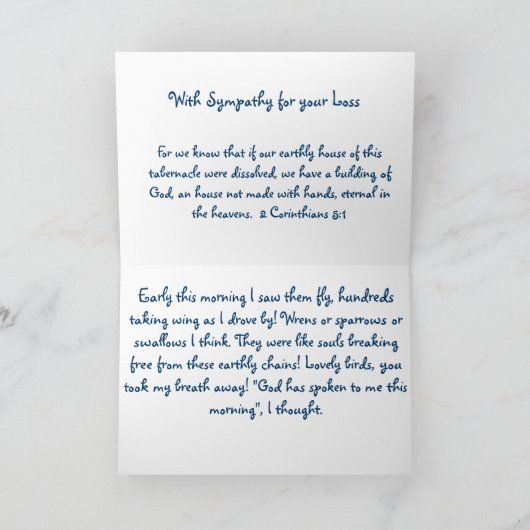 With Sympathy for your Loss
For we know that if our earthly house of this
tabernacle were dissolved, we have a building of
God, an house not made with hands, eternal in
the heavens. 2 Corinthians 5:1
Early this morning I saw them fly, hundreds
taking wing as I drove by! Wrens or sparrows or
swallows I think. They were like souls breaking
free from these earthly chains! Lovely birds, you
took my breath away! "God has spoken to me this
morning", I thought.